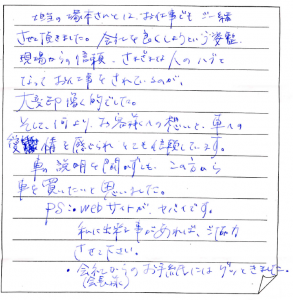 担当の塚本さんとは、お仕事でもご一緒
させて頂きました。会社を良くしようという姿勢
現場からの信頼、さまざまな人のハブと
なってお仕事をされているのが、
大変印象的でした。
そして、何より、お客様への想いと、車への
愛情を感じられ とても信頼しています。
車の説明を聞かずとも、この方から
車を買いたいと思いました。
PS:webサイトが、ヤバイです。
私に出来る事があれば、ご協力
させて下さい。
・会社からのお手紙にはグッときました。
(会長様)